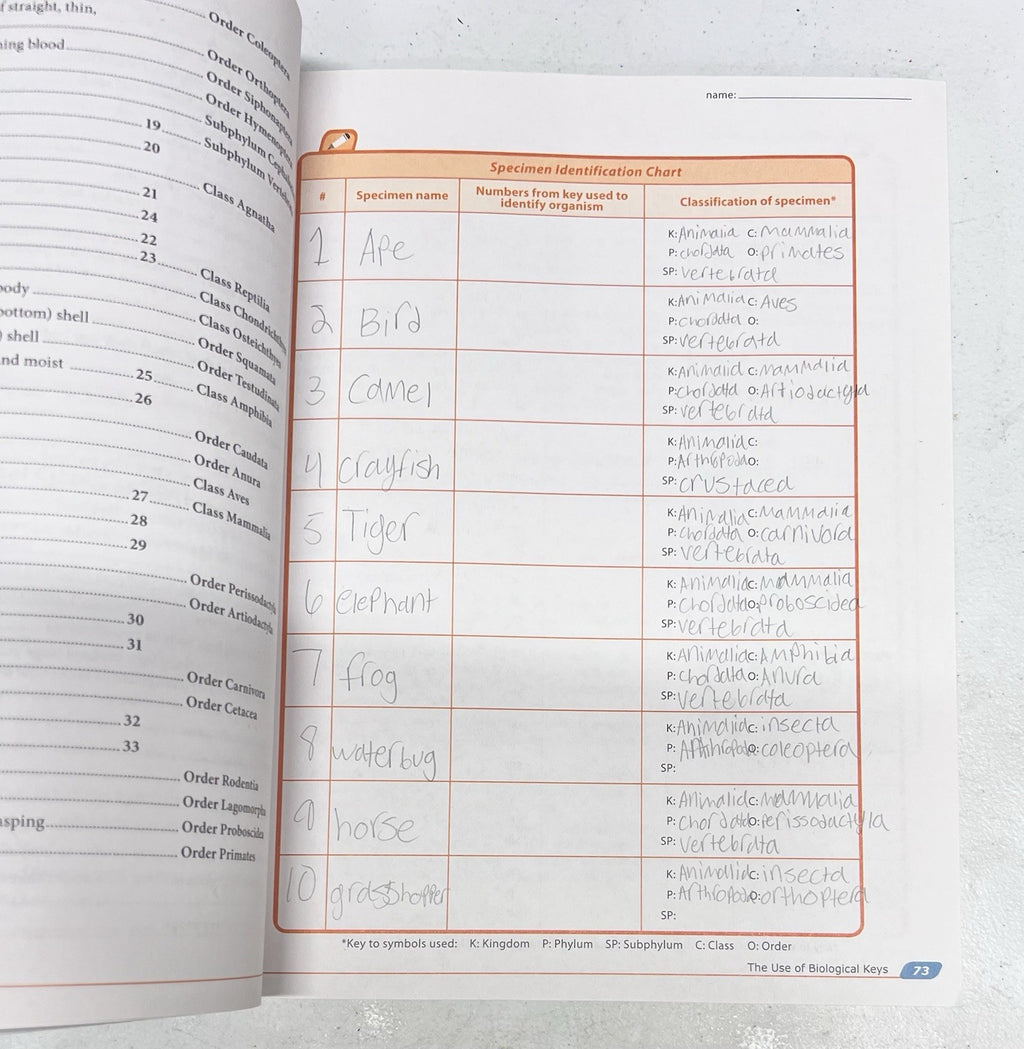 f straight, thin,
Order Coleoptera
ing blood
Order Orthoptera
Order Siphonaptera
Order Hymenoptera
19
Subphylum
20
Subphylum
21
Class Agnatha
24
22
23
Class Reptilia
ody
Class
ottom) shell
Class
) shell
Order Squamata
nd moist
Order Testudinata
25
Class Amphibia
26
Order Caudata
Order Anura
Class Aves
27
Class Mammalia
28
29
Order Perissodactyla
Order Artiodactyla
30
31
Order Carnivora
Order Cetacea
32
33
Order Rodentia
Order Lagomorpha
asping
Order Proboscidea
Order Primates
name:
Specimen Identification Chart
# Specimen name Numbers from key used to identify organism Classification of specimen*
1 Ape K: Animalia C: Mammalia
P: chordata O: primates
SP: vertebrata
2 Bird K: Animalia C: Aves
P: chordata O:
SP: vertebrata
3 Camel K: Animalia C: Mammalia
P: chordata O: Artiodactyla
SP: vertebrata
4 crayfish K: Animalia C:
P: Arthropoda O:
SP: crustacea
5 Tiger K: Animalia C: Mammalia
P: chordata O: carnivora
SP: vertebrata
6 elephant K: Animalia C: Mammalia
P: chordata O: proboscidea
SP: vertebrata
7 frog K: Animalia C: Amphibia
P: chordata O: Anura
SP: vertebrata
8 waterbug K: Animalia C: insecta
P: Arthropoda O: coleoptera
SP:
9 horse K: Animalia C: Mammalia
P: chordata O: perissodactyla
SP: vertebrata
10 grasshopper K: Animalia C: insecta
P: Arthropoda O: orthoptera
SP:
*Key to symbols used: K: Kingdom P: Phylum SP: Subphylum C: Class O: Order
The Use of Biological Keys 73